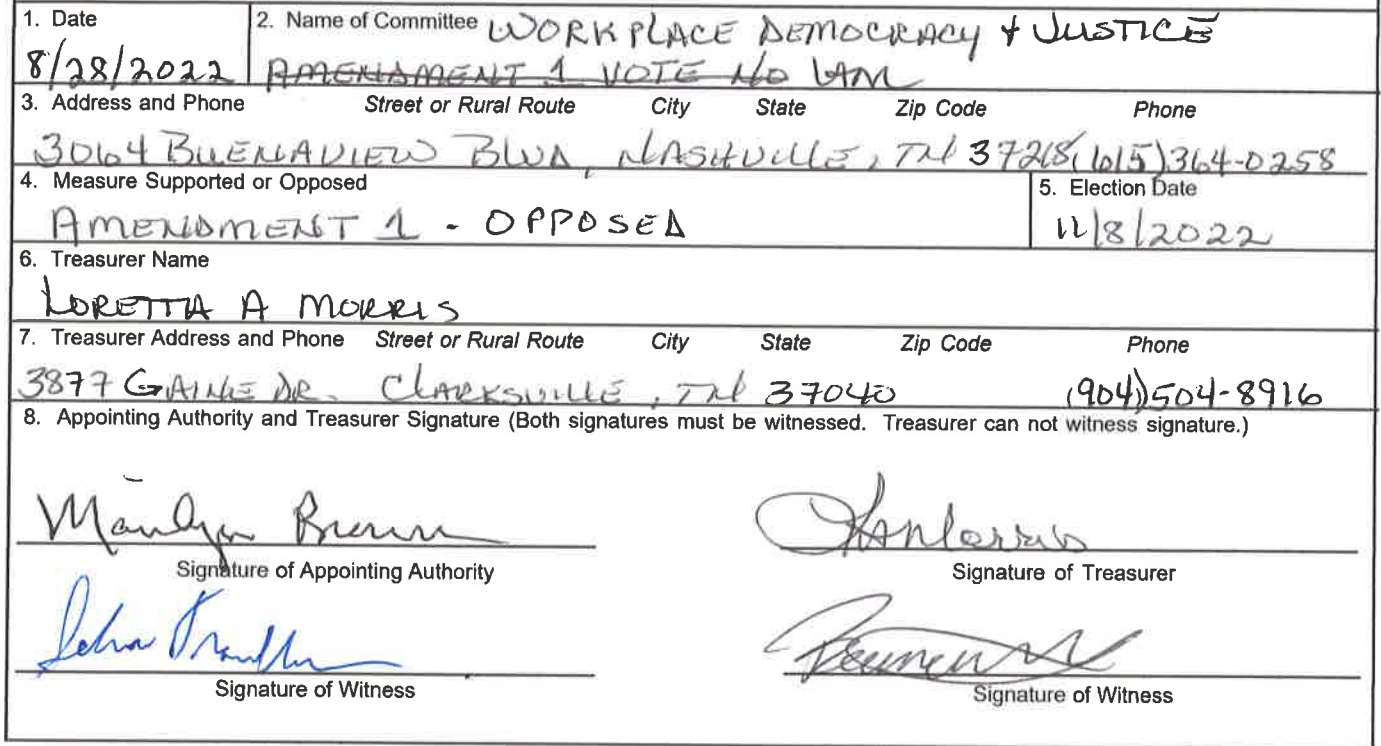 1. Date
2. Name of Committee WORKPLACE DEMOCRACY & JUSTICE
8/28/2022 AMENDMENT 1 VOTE NO
3. Address and Phone Street or Rural Route City State Zip Code Phone
3064 BUENAVIEW BLVD, NASHVILLE, TN 37218 (615)364-0258
4. Measure Supported or Opposed
5. Election Date
AMENDMENT 1 - OPPOSED
11/8/2022
6. Treasurer Name
LORETTA A MORRIS
7. Treasurer Address and Phone Street or Rural Route City State Zip Code Phone
3877 GAINE DR. CLARKSVILLE, TN 37040 (904)504-8916
8. Appointing Authority and Treasurer Signature (Both signatures must be witnessed. Treasurer can not witness signature.)
Marilyn Brown
Signature of Appointing Authority
Signature of Treasurer
Signature of Witness
Signature of Witness